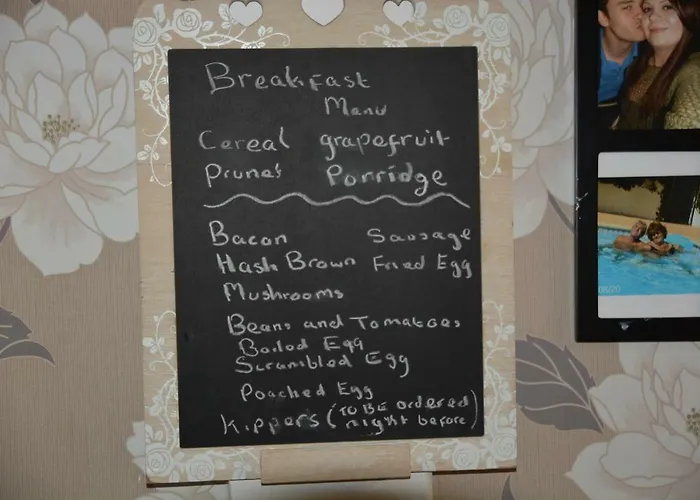 Breakfast
Menu
Cereal grapefruit
Prunes Porridge
Bacon Sausage
Hash Brown Fried Egg
Mushrooms
Beans and Tomatoes
Boiled Egg
Scrambled Egg
Poached Egg
Kippers (TO BE ordered
night before)